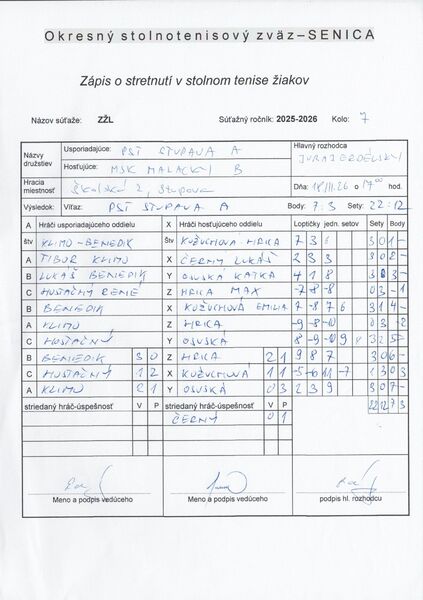 Okresný stolnotenisový zväz–SENICA
Zápis o stretnutí v stolnom tenise žiakov
Názov súťaže: ZŽL Súťažný ročník: 2025-2026 Kolo: 7
Názvy družstiev Usporiadajúce: PST STUPAVA A Hlavný rozhodca
Hosťujúce: MSK MALACKY B JURAJ
Hracia miestnosť Školská 2, Stupava Dňa: 17⁰⁰ hod.
Výsledok: Víťaz: PST STUPAVA A Body: 7:3 Sety: 22:12
A Hráči usporiadajúceho oddielu X Hráči hosťujúceho oddielu Loptičky jedn. setov Sety Body
štv KLIMO-BENEDIK Štv KUŽUCHOVÁ-HRICA 7 3 6 3 0 1 -
A TIBOR KLIMO X ČERNÝ LUKÁŠ 2 3 3 3 0 2 -
B LUKÁŠ BENEDIK Y OSUSKÁ KATKA 4 1 8 3 0 3 -
C HOSTAČNÝ RENÉ Z HRICA MAX -7 -8 -8 0 3 - 1
B BENEDIK X KUŽUCHOVÁ EMILIA 7 -8 7 6 3 1 4 -
A KLIMO Z HRICA -9 -8 -10 0 3 - 2
C HOSTAČNÝ Y OSUSKÁ 8 -9 -10 9 4 3 2 5 -
B BENEDIK 3 0 Z HRICA 2 1 9 8 7 3 0 6 -
C HOSTAČNÝ 1 2 X KUŽUCHOVÁ 1 1 -5 -6 11 -7 1 3 0 3
A KLIMO 2 1 Y OSUSKÁ 0 3 2 3 9 3 0 7 -
striedaný hráč-úspešnosť V P striedaný hráč-úspešnosť V P 22 12 7 3
ČERNÝ 0 1
Meno a podpis vedúceho Meno a podpis vedúceho podpis hl. rozhodcu